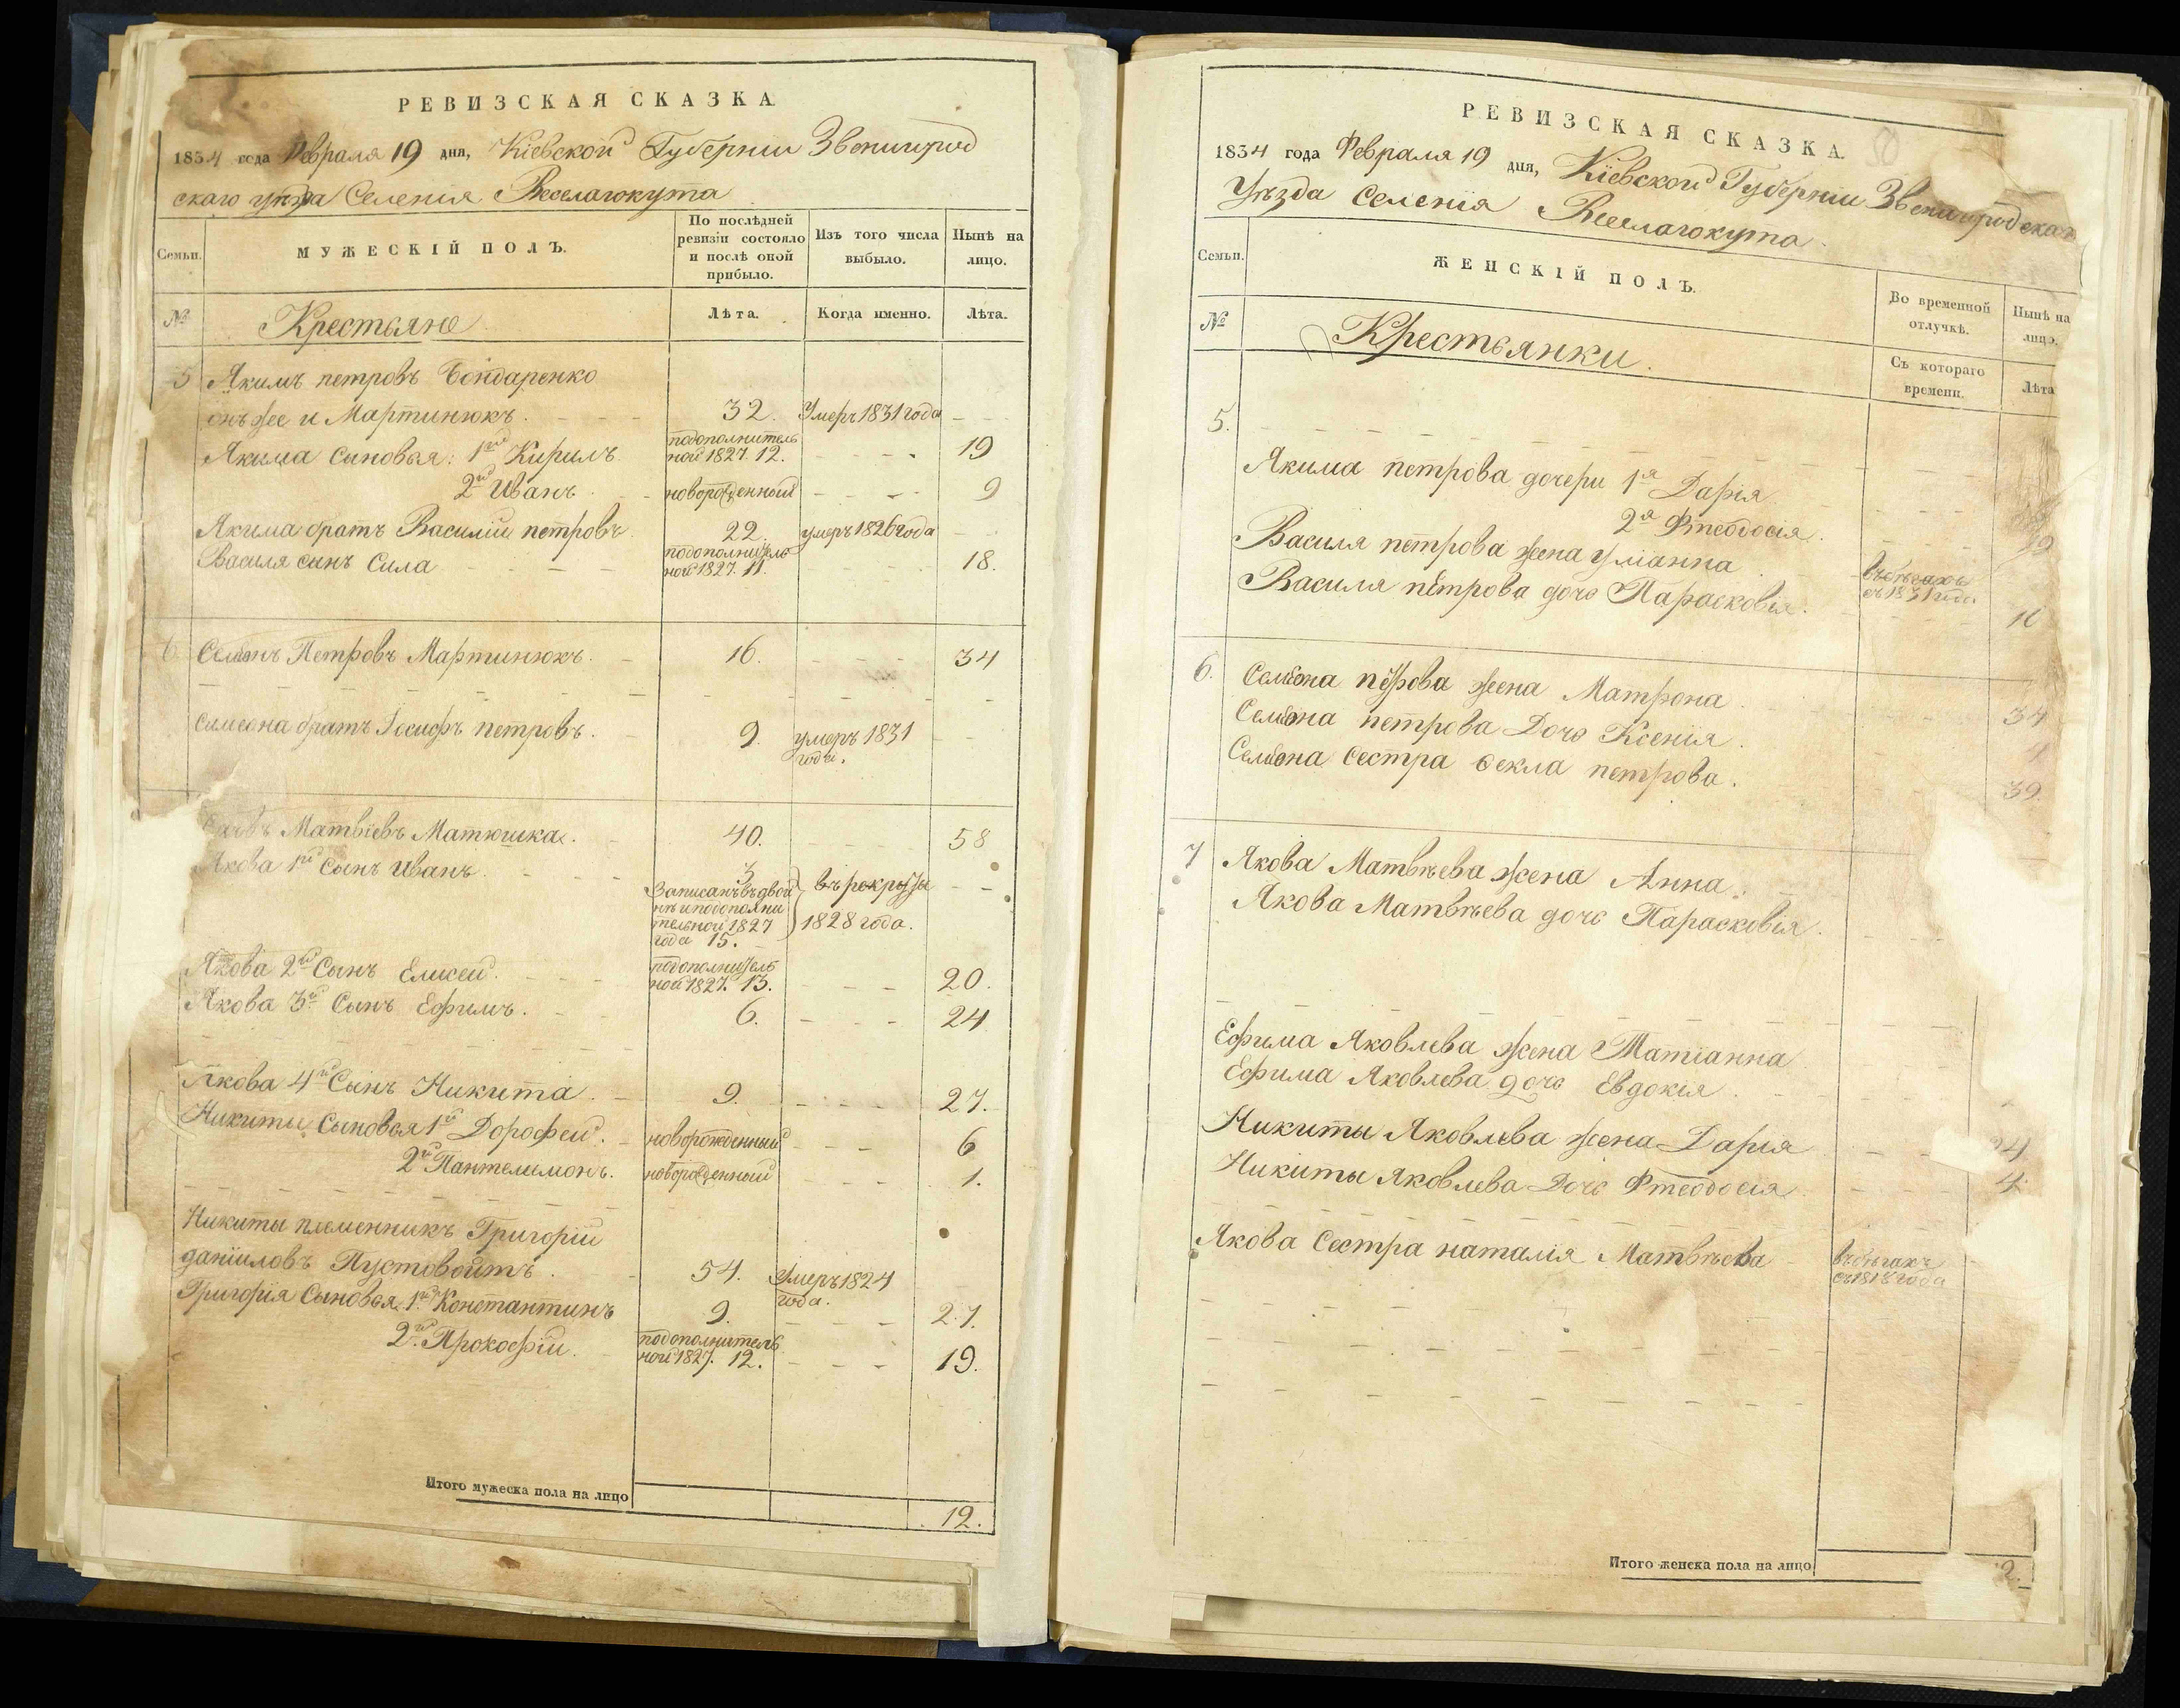 РЕВИЗСКАЯ СКАЗКА.
1834 года Февраля 19 дня, Кіевской Губерніи Звенигород
скаго уѣзда Селенія Веселагокута
Семьи.
МУЖЕСКІЙ ПОЛЪ.
По послѣдней ревизіи состояло и послѣ оной прибыло.
Изъ того числа выбыло.
Нынѣ на лицо.
№
Крестьяне
Лѣта.
Когда именно.
Лѣта.
5 Якимъ петровъ Бондаренко
онъ же и Мартинюкъ. 32. Умеръ 1831 года
Якима сыновья: 1й Кирилъ подополнитель
ной 1827. 12. 19
2й Иванъ новорожденный 9
Якима братъ Василій петровъ 22. умеръ 1826 года
Василя сынъ Сила подополнитель
ной 1827. 11. 18.
6 Семенъ Петровъ Мартинюкъ. 16. 34
Симеона братъ Іосифъ петровъ. 9. умеръ 1831
года.
Матвіевъ Матюшка. 40. 58
Якова 1й Сынъ Иванъ 3
Записанъ въ двой
нѣ и подополни
тельной 1827
года 15.
въ рекруты
1828 года.
Якова 2й Сынъ Елисей. подополнитель
ной 1827. 13. 20.
Якова 3й Сынъ Ефимъ. 6. 24
Якова 4й Сынъ Никита. 9. 27.
Никиты Сыновья 1й Дорофей. новорожденный 6
2й Пантелимонъ. новорожденный 1.
Никиты племенникъ Григорій
даніиловъ Пустовойтъ. 54. Умеръ 1824
года.
Григорія Сыновья 1й Константинъ 9. 27.
2й Прокофій. подополнитель
ной 1827. 12. 19.
Итого мужеска пола на лицо 12.
РЕВИЗСКАЯ СКАЗКА.
50
1834 года Февраля 19 дня, Кіевской Губерніи Звенигородскаго
Уѣзда Селенія Веселагокута
Семьи.
ЖЕНСКІЙ ПОЛЪ.
Во временной отлучкѣ.
Нынѣ на лицо.
№
Крестьянки.
Съ котораго времени.
Лѣта
5.
Якима петрова дочери 1я Дарія
2я Фтеодосія.
Василя петрова жена Уліанна въ бѣгахъ
съ 1831 года.
Василя петрова дочь Парасковія. 16
6. Семена петрова жена Матрона 34
Семена петрова Дочь Ксенія. 4
Семена Сестра Ѳекла петрова. 39.
7 Якова Матвѣева жена Анна.
Якова Матвѣева дочь Парасковія.
Ефима Яковлева жена Татіанна
Ефима Яковлева дочь Евдокія.
Никиты Яковлева жена Дарія 4
Никиты Яковлева Дочь Фтеодосія 4.
Якова Сестра наталія Матвѣева въ бѣгахъ
съ 1818 года
Итого женска пола на лицо 2.